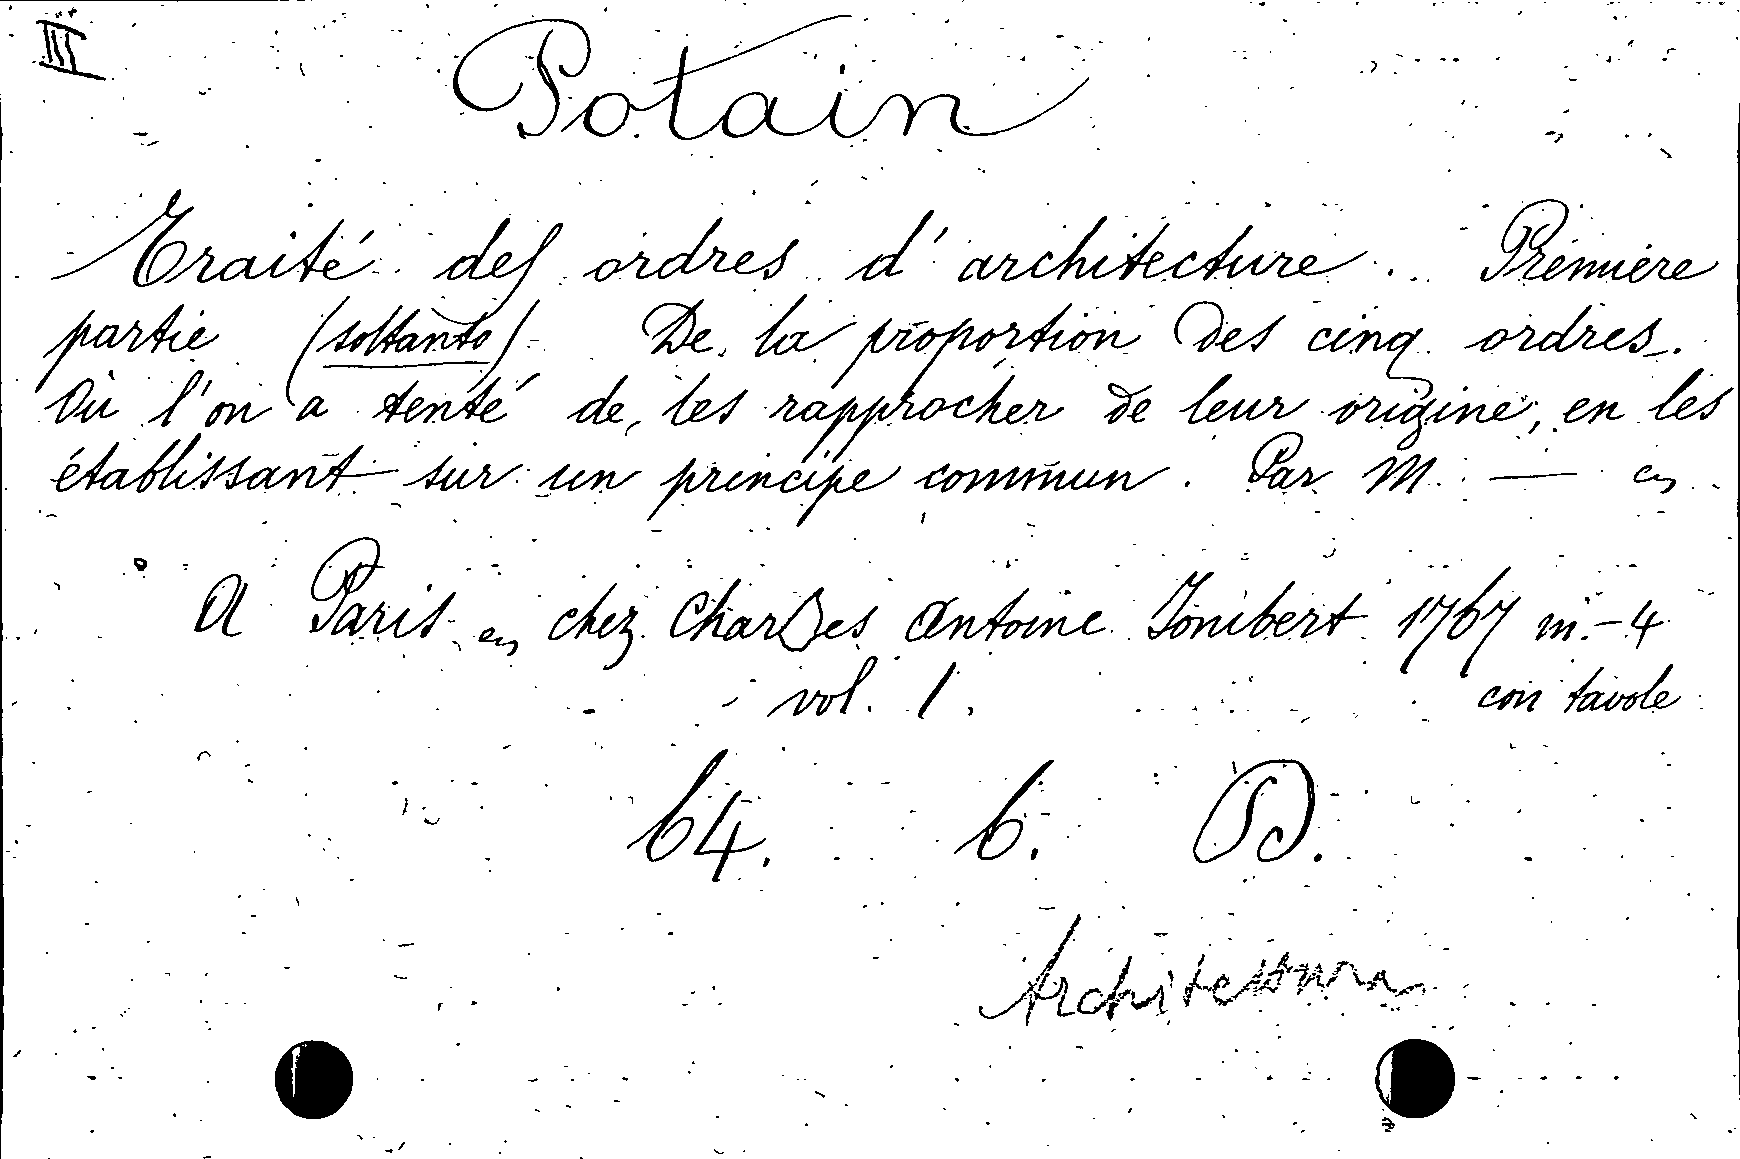 III
Potain
Traité des ordres d'architecture. Première
partie (soltanto) De la proportion des cinq ordres.
Où l'on a tenté de les rapprocher de leur origine, en les
établissant sur un principe commun. Par M. —
A Paris chez Charles Antoine Jombert 1767 in.-4
vol. 1. con tavole
64. 6. D.
Architettura